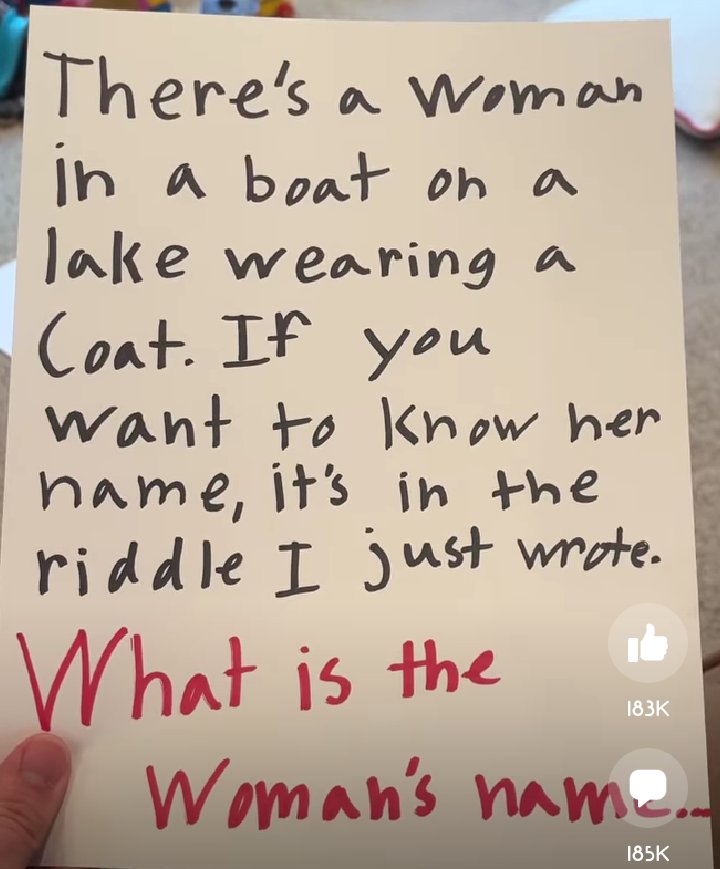 There's a Woman
in a boat on a
lake wearing a
Coat. If you
want to know her
name, it's in the
riddle I just wrote.
What is the
Woman's name...
183K
185K